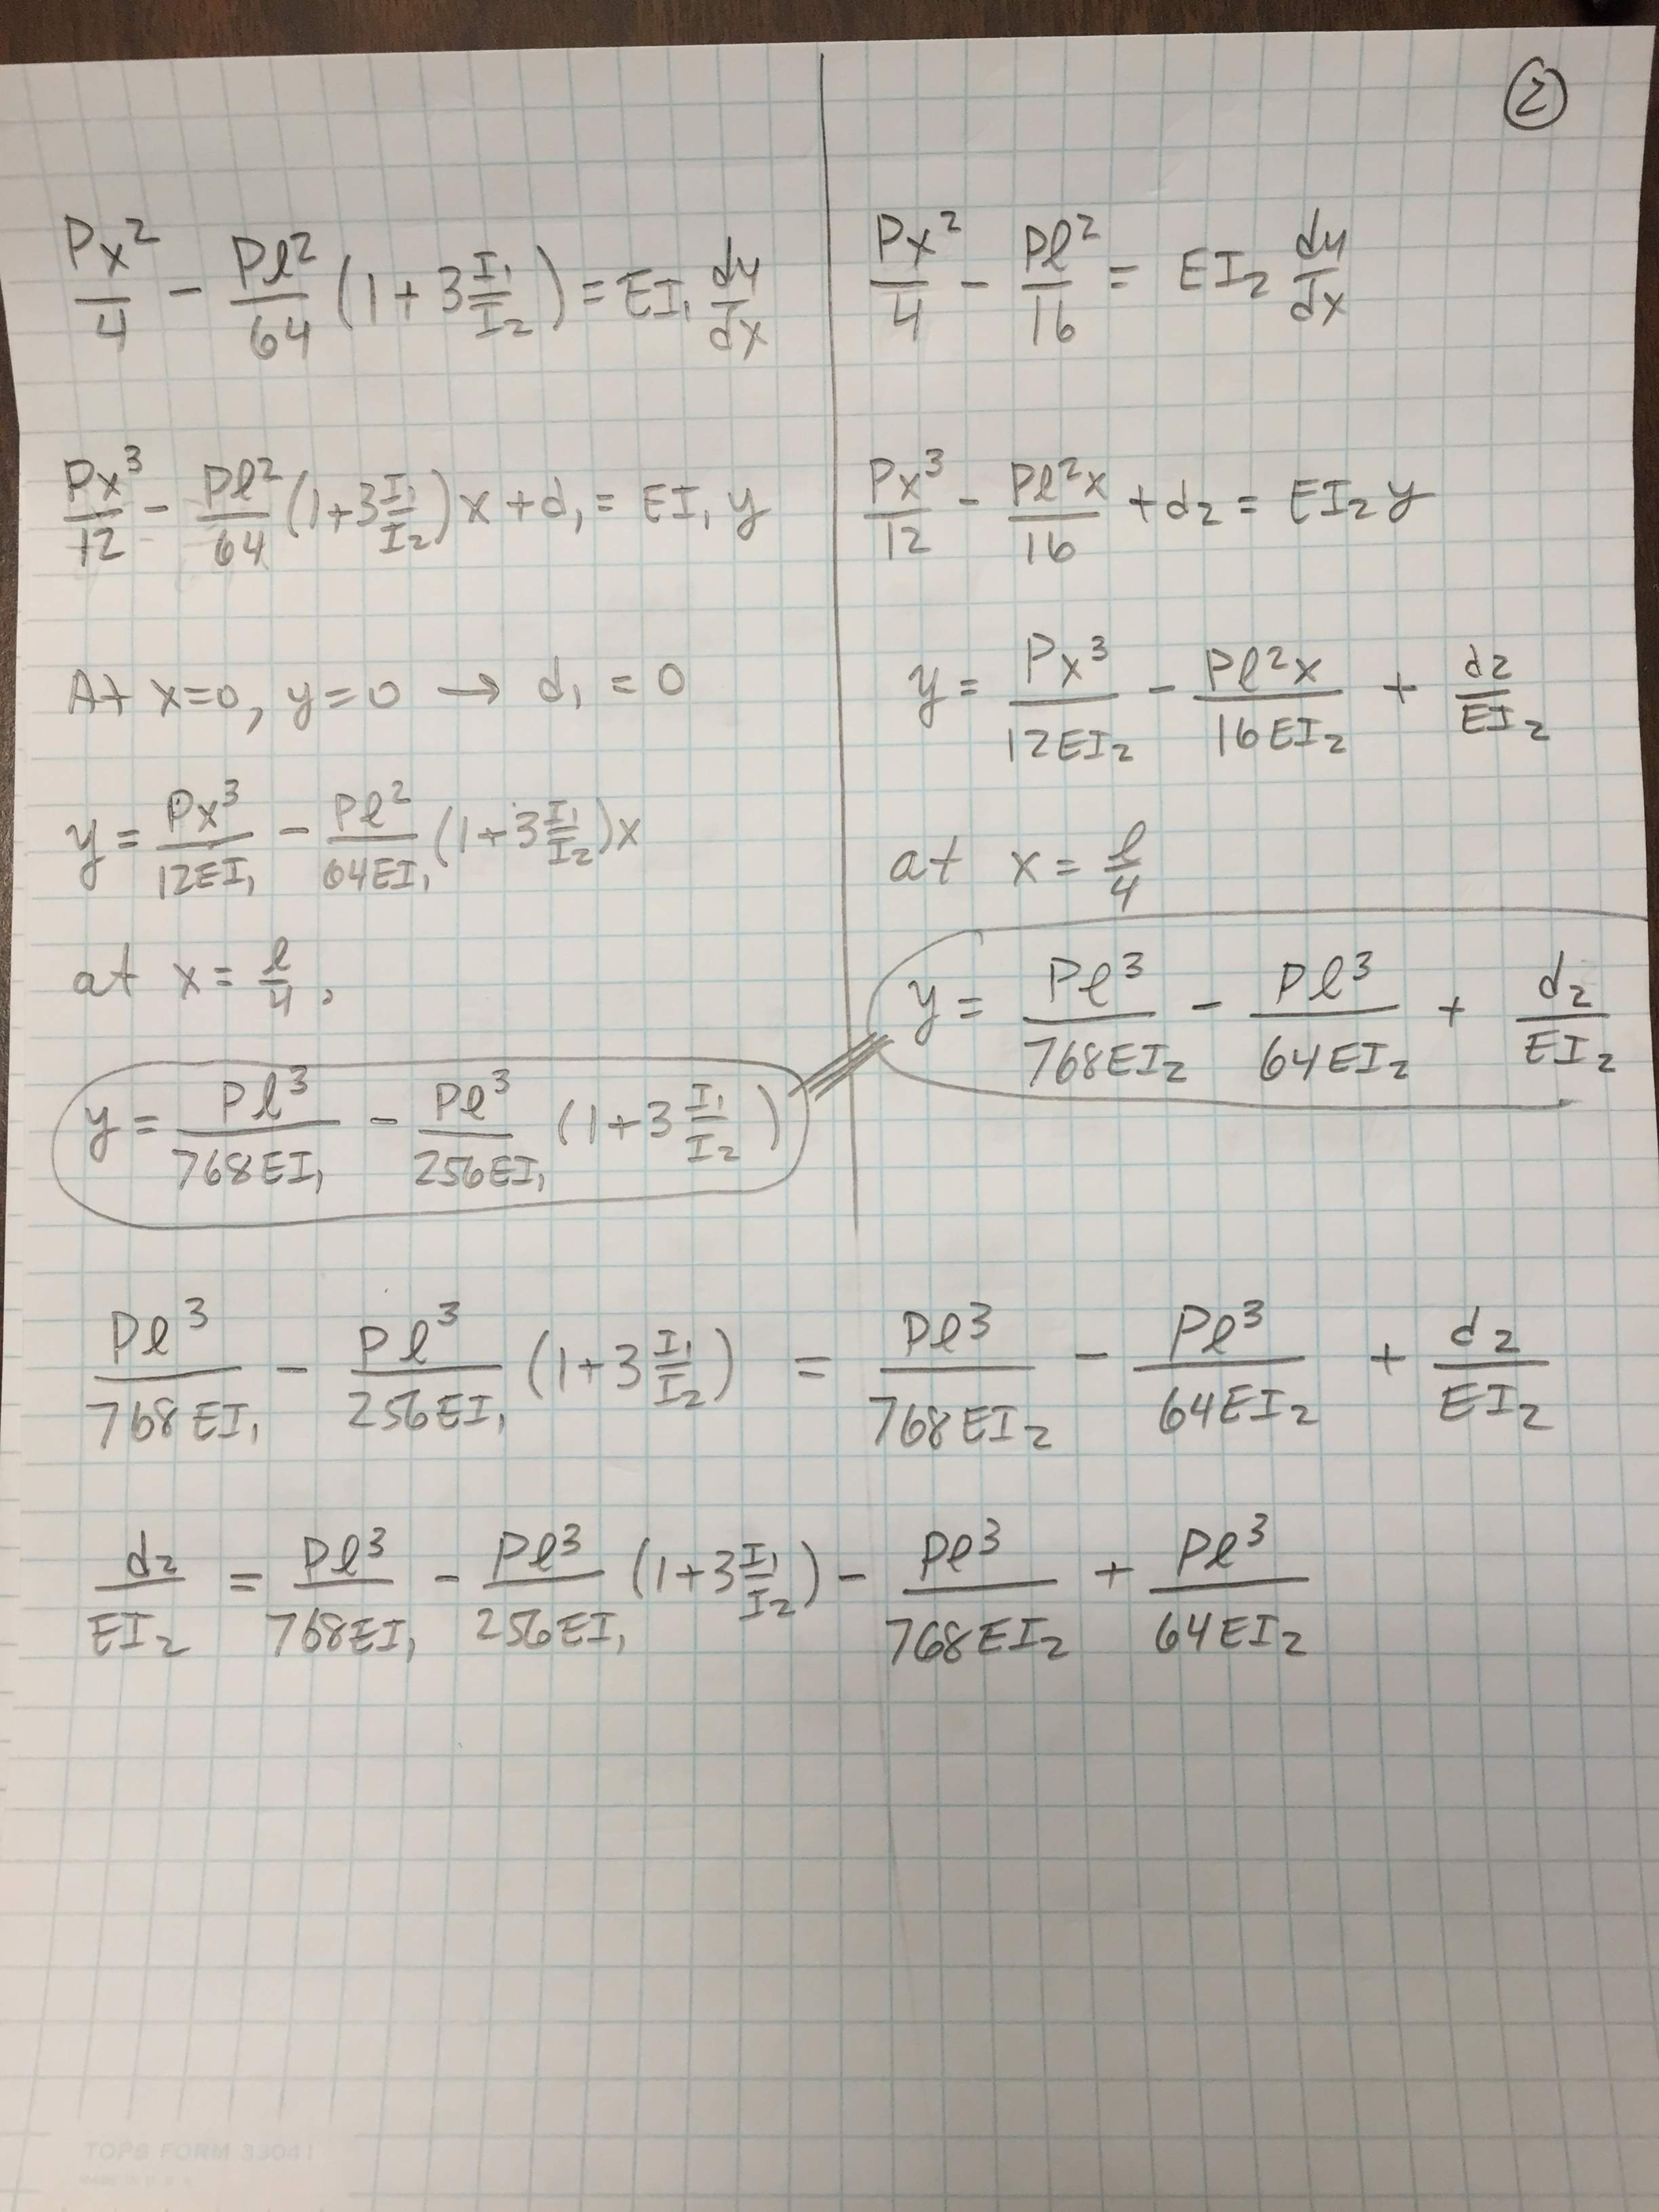 ②
Px²/4 − Pl²/64 (1 + 3 I₁/I₂) = EI₁ dy/dx
Px³/12 − Pl²/64 (1 + 3 I₁/I₂) x + d₁ = EI₁ y
At x=0, y=0 → d₁ = 0
y = Px³/12EI₁ − Pl²/64EI₁ (1 + 3 I₁/I₂) x
at x = l/4,
y = Pl³/768EI₁ − Pl³/256EI₁ (1 + 3 I₁/I₂)
Px²/4 − Pl²/16 = EI₂ dy/dx
Px³/12 − Pl²x/16 + d₂ = EI₂ y
y = Px³/12EI₂ − Pl²x/16EI₂ + d₂/EI₂
at x = l/4
y = Pl³/768EI₂ − Pl³/64EI₂ + d₂/EI₂
Pl³/768EI₁ − Pl³/256EI₁ (1 + 3 I₁/I₂) = Pl³/768EI₂ − Pl³/64EI₂ + d₂/EI₂
d₂/EI₂ = Pl³/768EI₁ − Pl³/256EI₁ (1 + 3 I₁/I₂) − Pl³/768EI₂ + Pl³/64EI₂
TOPS FORM